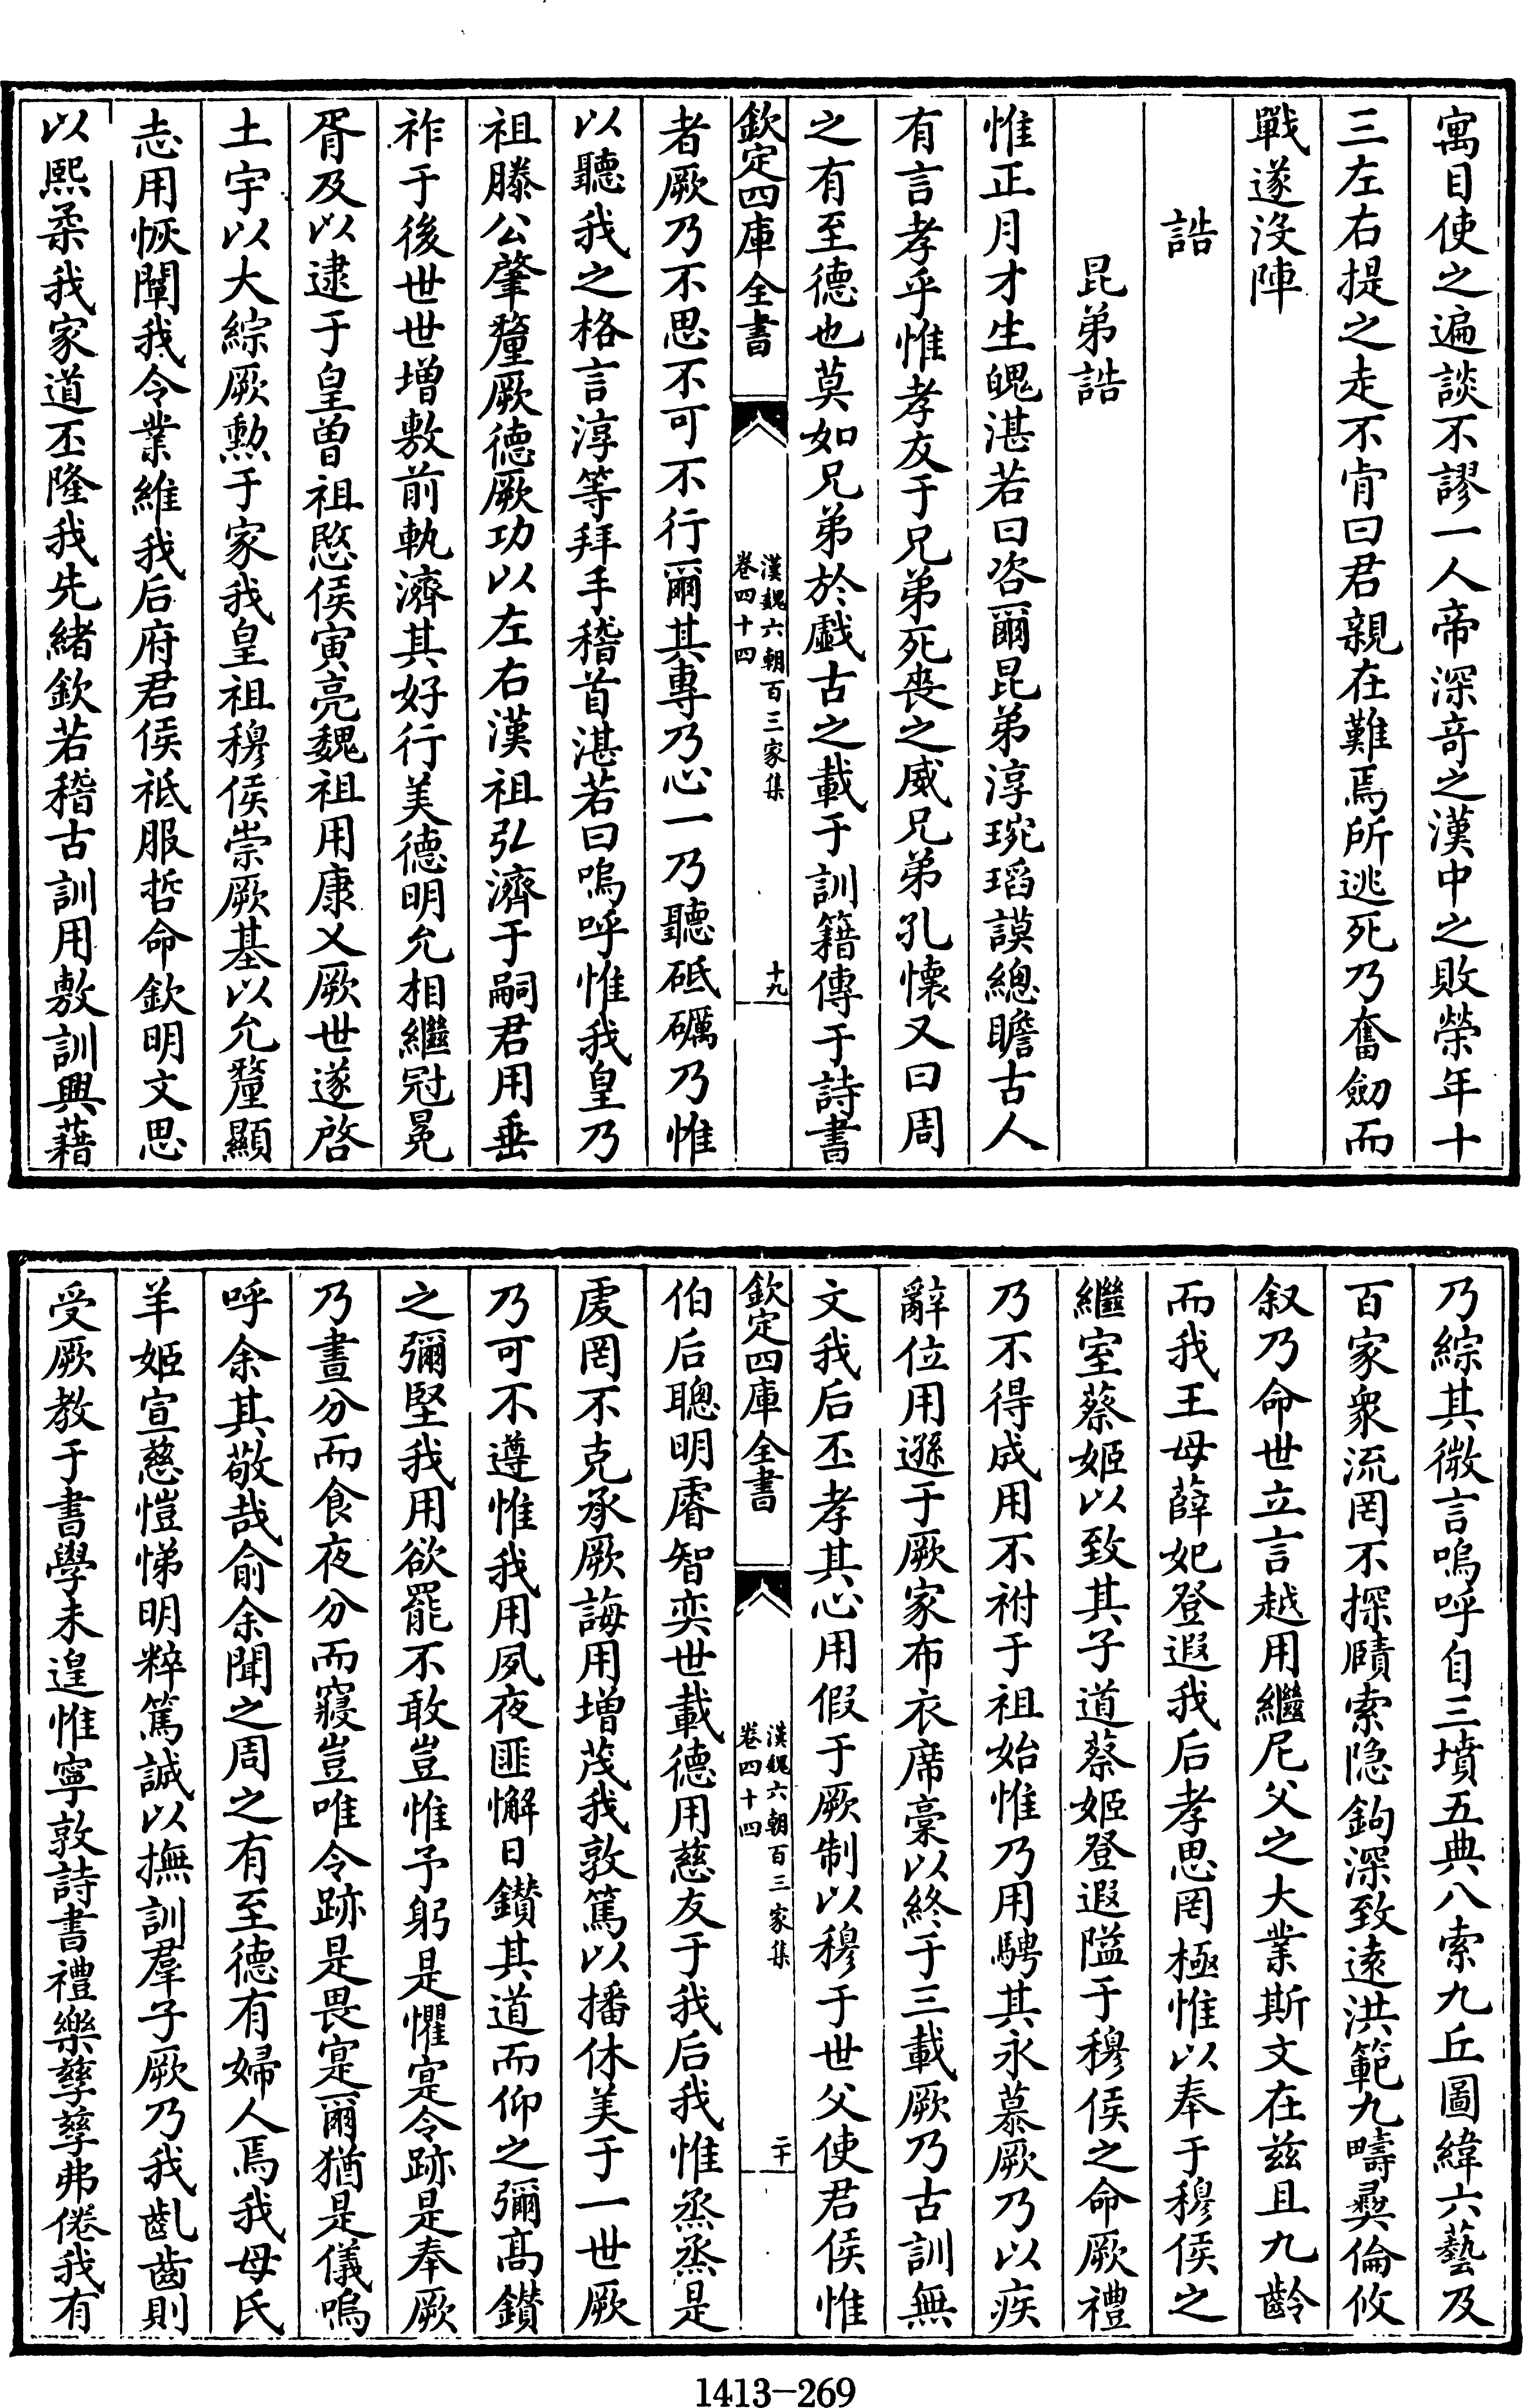 寓目使之遍談不謬一人帝深竒之漢中之敗榮年十
三左右提之走不肯曰君親在難焉所逃死乃奮劒而
戰遂没陣
誥
昆弟誥
惟正月才生魄湛若曰咨爾昆弟淳琬瑫謨總瞻古人
有言孝乎惟孝友于兄弟死喪之威兄弟孔懷又曰周
之有至德也莫如兄弟於戯古之載于訓籍傳于詩書
欽定四庫全書
漢魏六朝百三家集
卷四十四
十九
者厥乃不思不可不行爾其專乃心一乃聽砥礪乃惟
以聽我之格言淳等拜手稽首湛若曰嗚呼惟我皇乃
祖滕公肇釐厥德厥功以左右漢祖弘濟于嗣君用垂
祚于後世世增敷前軌濟其好行美德明允相繼冠冕
胥及以逮于皇曽祖愍侯寅亮魏祖用康乂厥世遂啓
土宇以大綜厥勲于家我皇祖穆侯崇厥基以允釐顯
志用恢闡我令業維我后府君侯祗服哲命欽明文思
以熙柔我家道丕隆我先緒欽若稽古訓用敷訓興藉
乃綜其微言嗚呼自三墳五典八索九丘圖緯六藝及
百家衆流罔不探賾索隐鉤深致逺洪範九疇彞倫攸
叙乃命世立言越用繼尼父之大業斯文在兹且九齡
而我王母薛妃登遐我后孝思罔極惟以奉于穆侯之
繼室蔡姬以致其子道蔡姬登遐隘于穆侯之命厥禮
乃不得成用不祔于祖始惟乃用騁其永慕厥乃以疾
辭位用遜于厥家布衣席稾以終于三載厥乃古訓無
文我后丕孝其心用假于厥制以穆于世父使君侯惟
欽定四庫全書
漢魏六朝百三家集
卷四十四
二十
伯后聰明睿智奕世載德用慈友于我后我惟烝烝是
䖍罔不克承厥誨用增茂我敦篤以播休美于一世厥
乃可不遵惟我用夙夜匪懈日鑚其道而仰之彌髙鑚
之彌堅我用欲罷不敢豈惟予躬是懼寔令跡是奉厥
乃晝分而食夜分而寢豈唯令跡是畏寔爾猶是儀嗚
呼余其敬哉俞余聞之周之有至德有婦人焉我母氏
羊姬宣慈愷悌明粹篤誠以撫訓羣子厥乃我齓齒則
受厥教于書學未遑惟寧敦詩書禮樂孳孳弗倦我有
1413-269